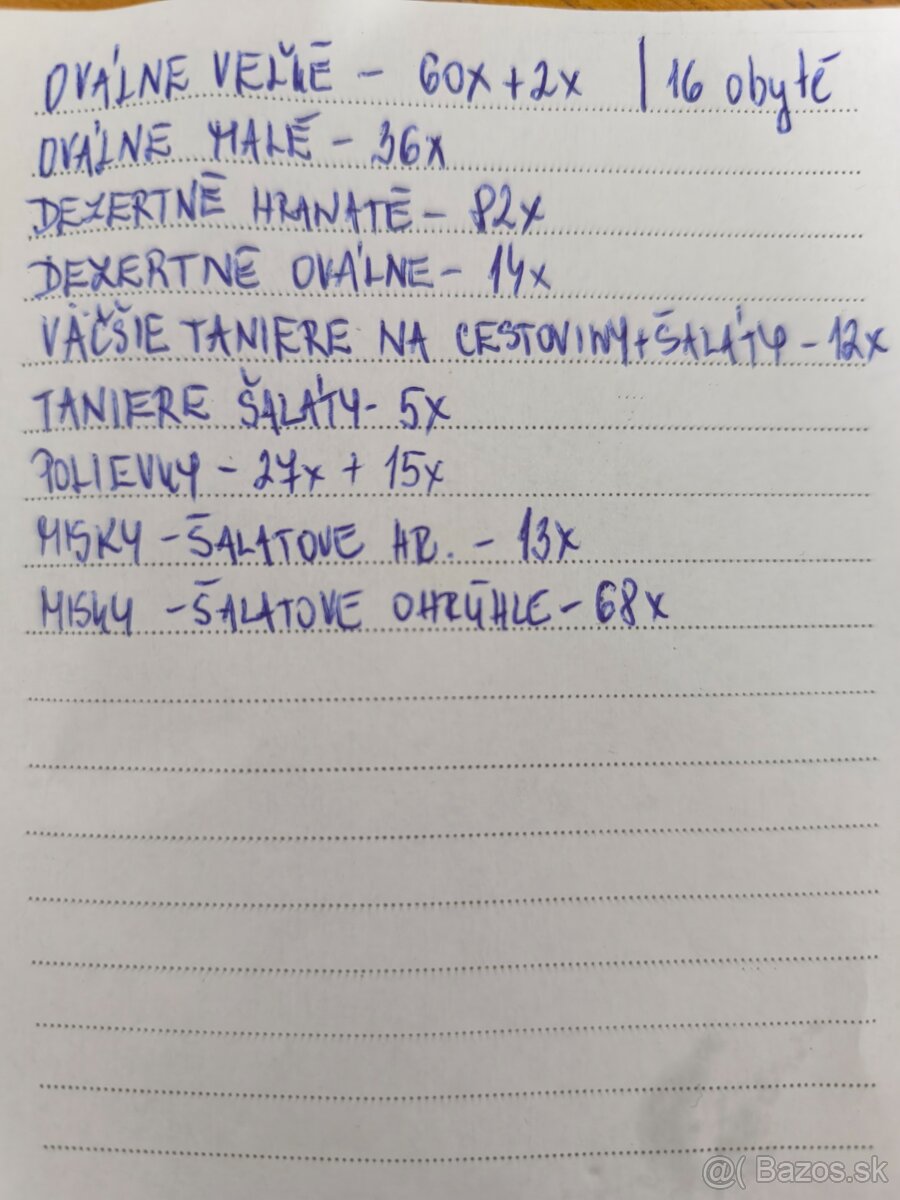 OVÁLNE VEĽKÉ - 60x + 2x | 16 obyté
OVÁLNE MALÉ - 36x
DEZERTNÉ HRANATÉ - 82x
DEZERTNÉ OVÁLNE - 14x
VÄČŠIE TANIERE NA CESTOVINY + ŠALÁTY - 12x
TANIERE ŠALÁTY - 5x
POLIEVKY - 27x + 15x
MISKY - ŠALATOVE HR. - 13x
MISKY - ŠALATOVE OKRÚHLE - 68x
@( Bazos.sk